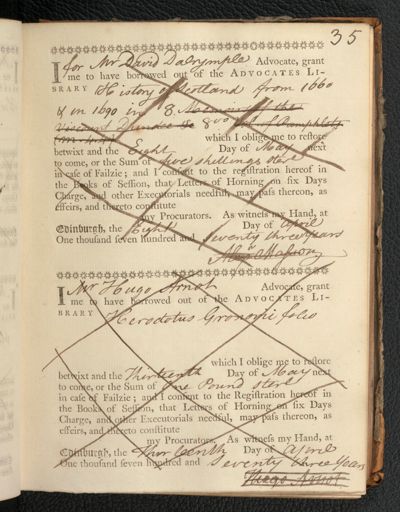 35
I for Mr David Dalrymple Advocate, grant
me to have borrowed out of the ADVOCATES LI-
BRARY History of Scotland from 1660
& in 1690 in 8 Memoirs of the
Viscount Dundee &c 8vo of Pamphlets
which I oblige me to restore
betwixt and the Eight Day of May next
to come, or the Sum of five shellings sterl
in case of Failzie; and I consent to the registration hereof in
the Books of Session, that Letters of Horning on six Days
Charge, and other Executorials needful, may pass thereon, as
effeirs, and thereto constitute
my Procurators. As witness my Hand, at
Edinburgh, the Eight Day of April
One thousand seven hundred and seventy three years
I Mr Hugo Arnot Advocate, grant
me to have borrowed out of the ADVOCATES LI-
BRARY Herodotus Gronovii folio
which I oblige me to restore
betwixt and the Thirteenth Day of May next
to come, or the Sum of One Pound sterl
in case of Failzie; and I consent to the Registration hereof in
the Books of Session, that Letters of Horning on six Days
Charge, and other Executorials needful, may pass thereon, as
effeirs, and thereto constitute
my Procurators. As witness my Hand, at
Edinburgh, the Thirteenth Day of April
One thousand seven hundred and seventy three Years
Hugo Arnot